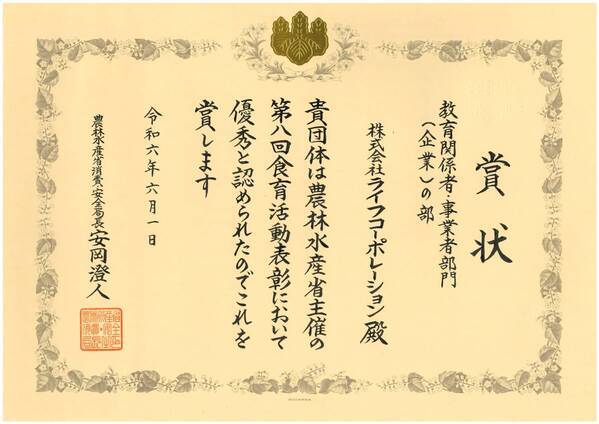 賞状
教育関係者・事業者部門
（企業）の部
株式会社ライフコーポレーション 殿
貴団体は農林水産省主催の
第八回食育活動表彰において
優秀と認められたのでこれを
賞します
令和六年六月一日
農林水産省消費・安全局長 安岡澄人